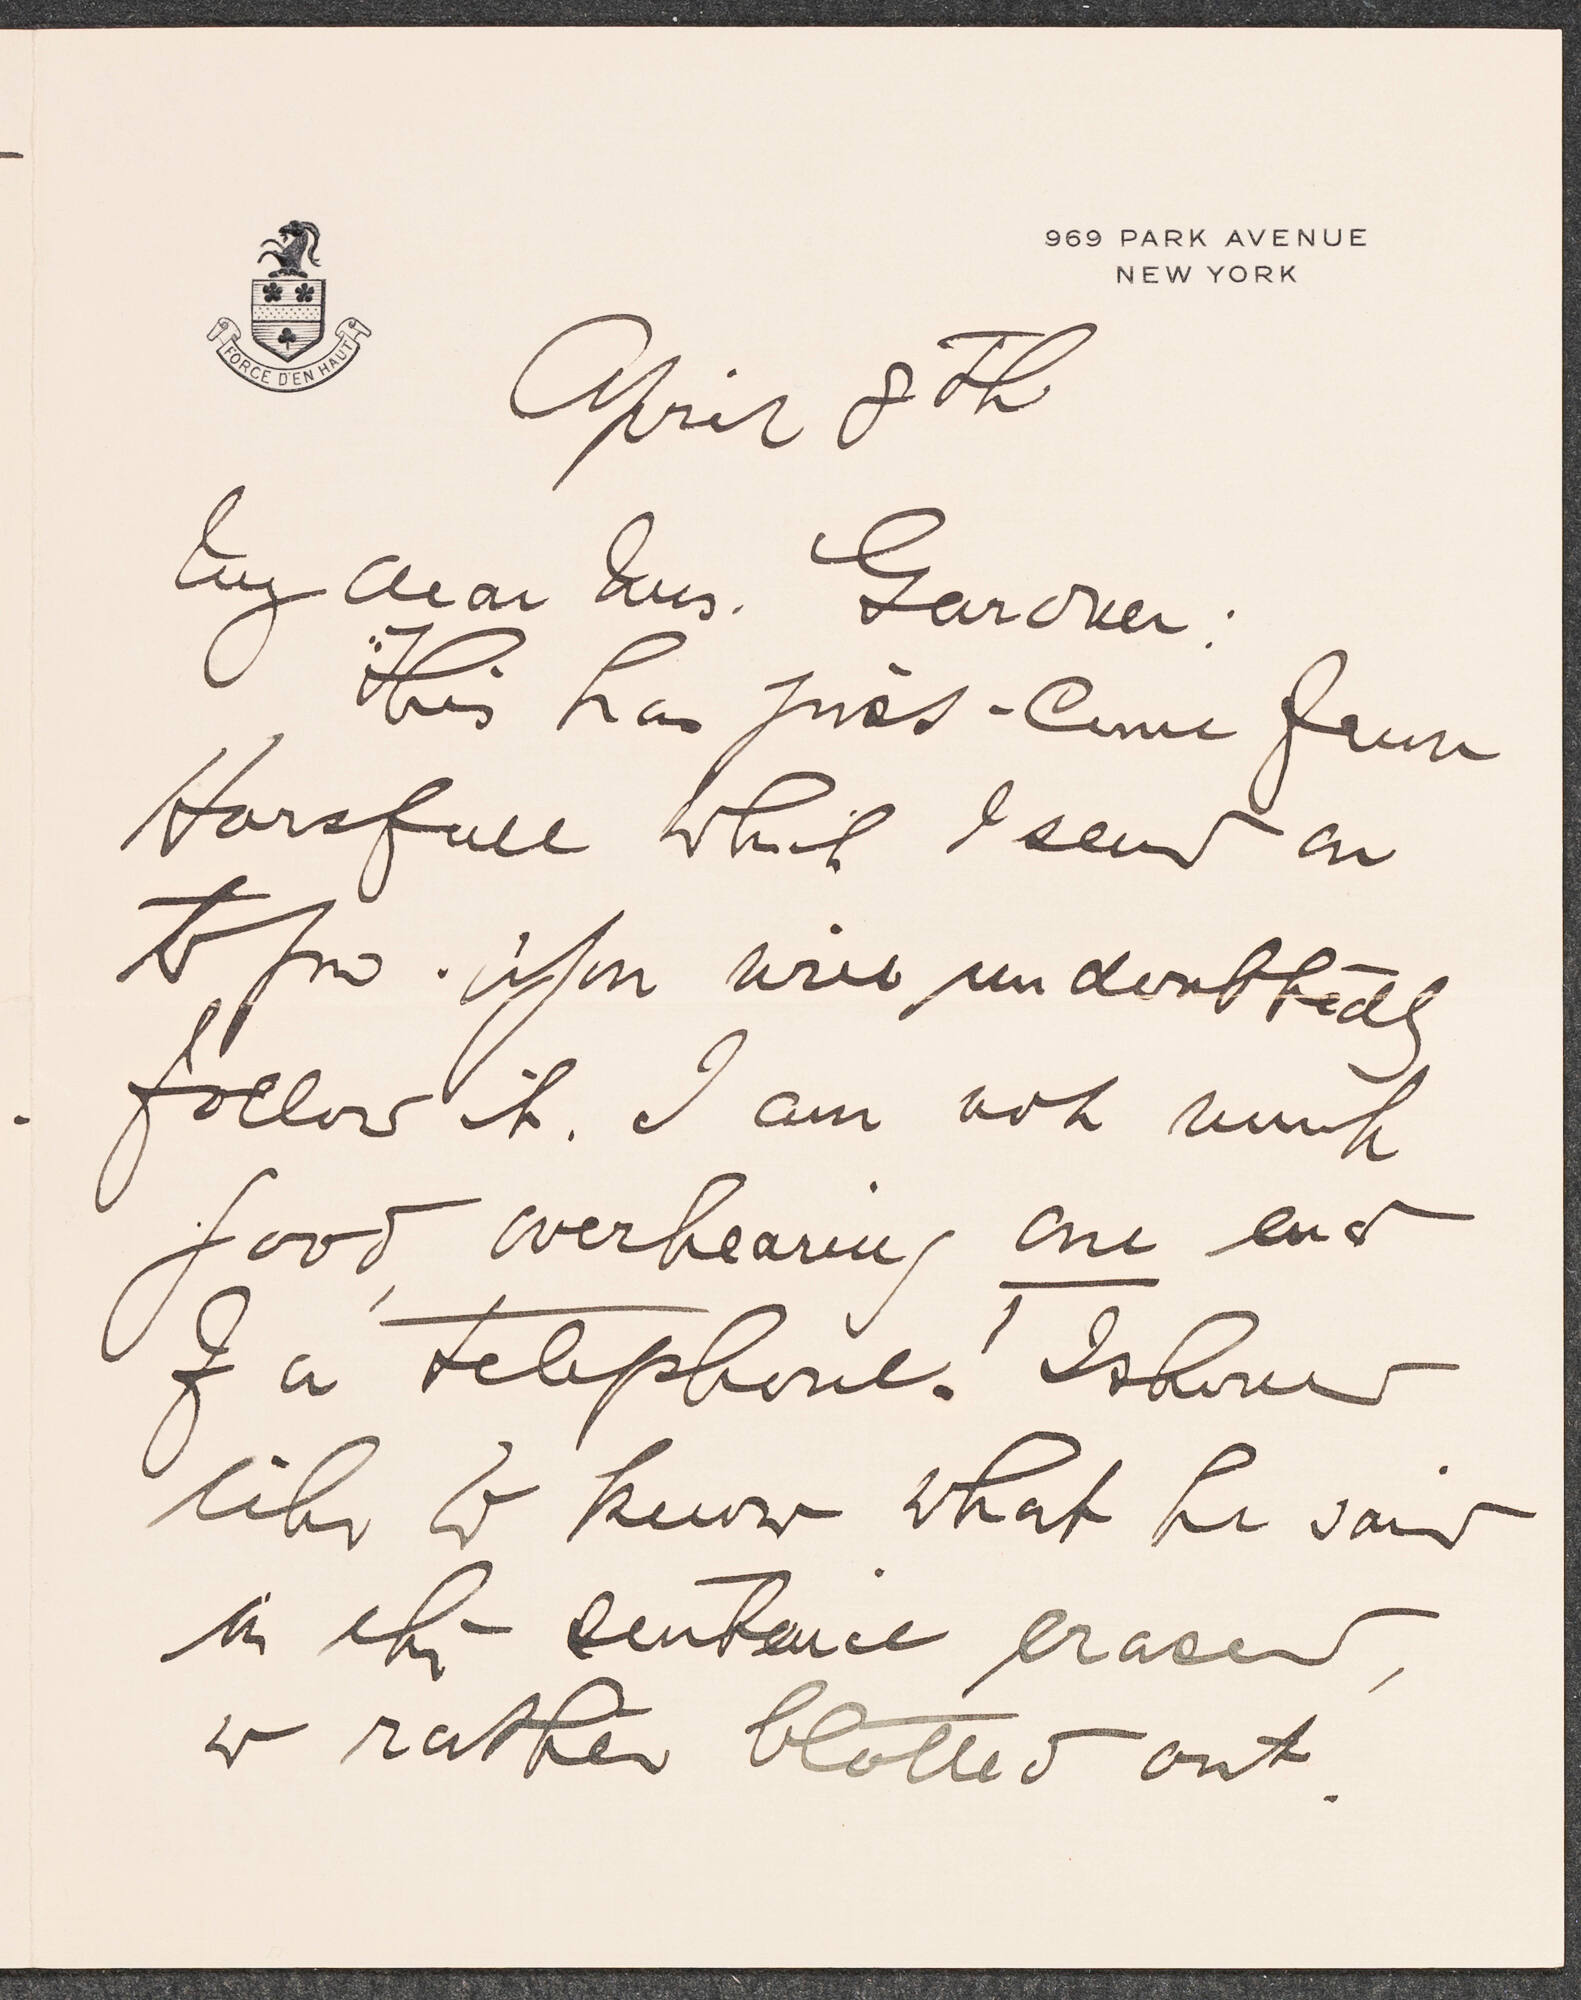 969 PARK AVENUE
NEW YORK
FORCE D'EN HAUT
April 8th
My dear Mrs. Gardner:
This has just come from
Horsfall which I send on
to you. You will undoubtedly
follow it. I am not much
good, overhearing one end
of a telephone! I should
like to know what he said
in the sentence erased,
or rather blotted out.